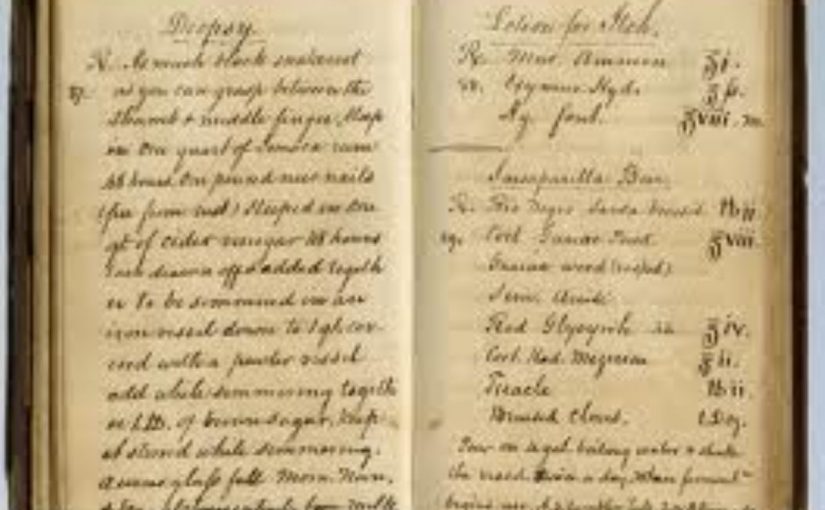 Dropsy.
℞. As much black snakeroot
87. as you can grasp between the
thumb & middle finger, steep
in One quart of Jamaica rum
48 hours. One pound new nails
(free from rust) steeped in One
qt of cider vinegar 48 hours
each drawn off & added togeth
er to be simmered in an
iron vessel down to 1 qt. cov-
ered with a pewter vessel
add while simmering togeth
er 1 lb. of brown sugar. Keep
it stirred while simmering.
A wine glass full Morn. Noon,
milk
Lotion for Itch.
℞. Mur. Ammon ℥i.
88. Oxymur. Hyd. ʒ
Aq. font. ℥viii. m.
Sarsaparilla Beer.
℞. Rio Negro Sarsa bruised lb ii
89. Cort. ℥viii.
Guaiac wood (rasped)
Sem. Anisi
Rad Glycyrrh aa ℥iv.
Cort. Rad. Mezereon ℥ii.
Treacle lb ii.
Bruised Cloves. 1 Doz.
Pour on boiling water & shake
the vessel a day. When
begins